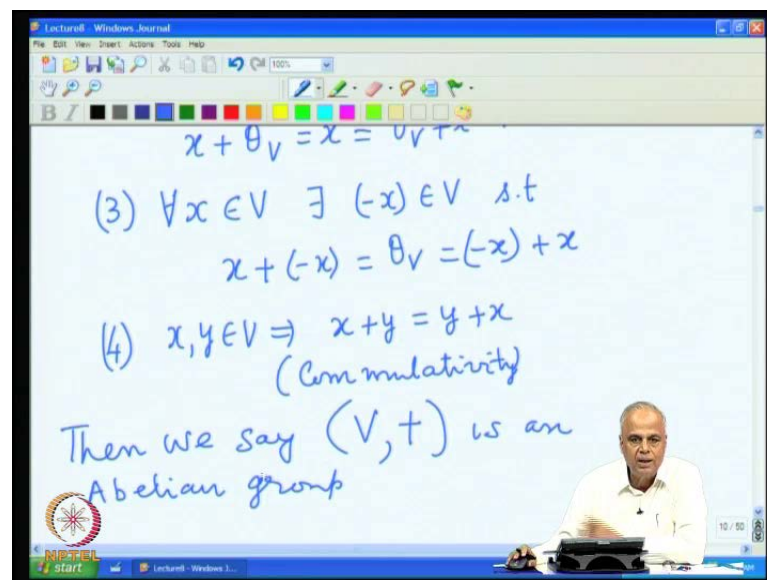 Lecture8 - Windows Journal
File Edit View Insert Actions Tools Help
100%
B I
x + θ_V = x = θ_V + x
(3) ∀x ∈ V ∃ (-x) ∈ V s.t
x + (-x) = θ_V = (-x) + x
(4) x, y ∈ V ⇒ x + y = y + x
(Commulativity)
Then we say (V, +) is an
Abelian group
10 / 50
NPTEL
start Lecture8 - Windows J...